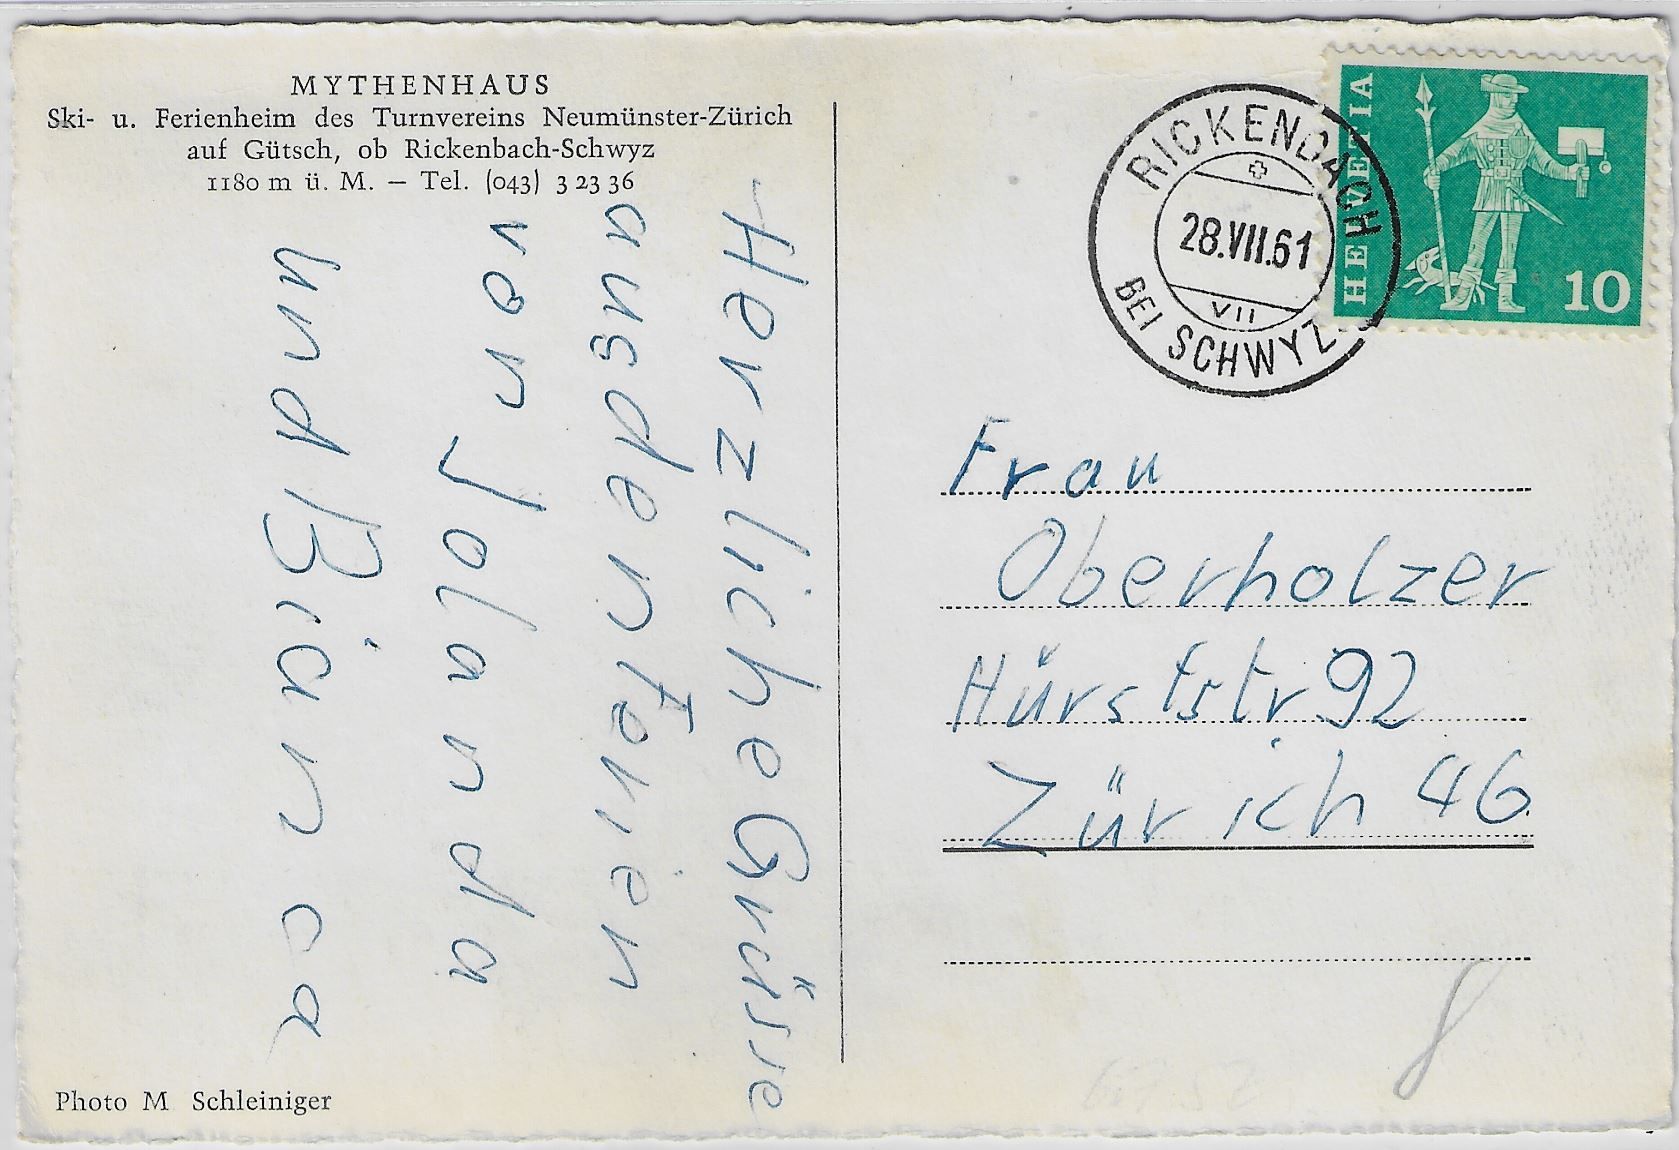 MYTHENHAUS
Ski- u. Ferienheim des Turnvereins Neumünster-Zürich
auf Gütsch, ob Rickenbach-Schwyz
1180 m ü. M. – Tel. (043) 3 23 36
Herzliche Grüsse
aus den Ferien
von Jolanda
und Bianca
Photo M Schleiniger
RICKENBACH
28.VII.61
VII
BEI SCHWYZ
HELVETIA
10
Frau
Oberholzer
Hürststr 92
Zürich 46.